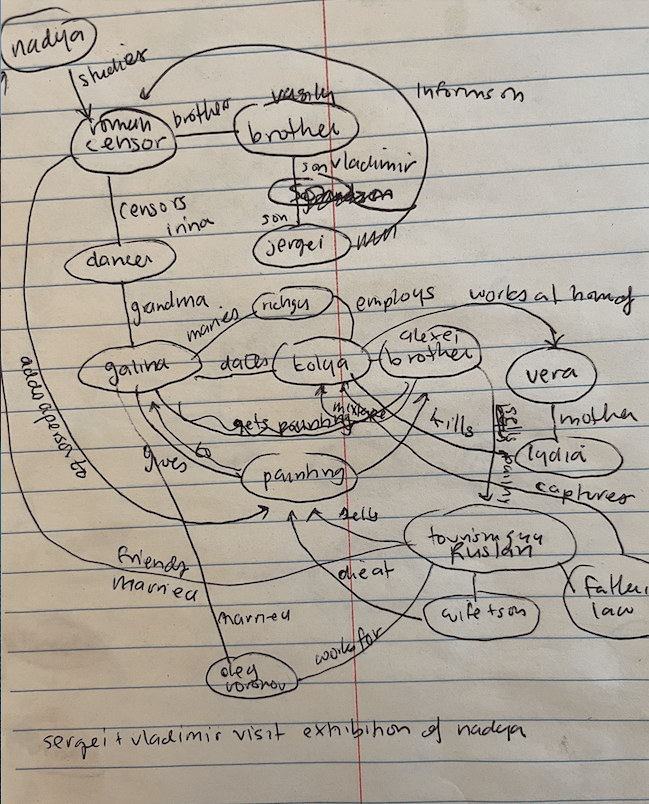 nadya
studies
Informs on
vasily
brother
roman
censor
brother
son vladimir
censors
irina
son
jergei
dancer
grandma
richguy
employs
works at home of
marries
alexei
brother
galina
dates
kolya
vera
gets painting
mixtape
kills
mother
adds a person to
sells
lydia
gives
to
painting
captures
sells
tourism guy
Ruslan
friends
married
die at
father
law
wife + son
married
works for
oleg
voronov
sergei + vladimir visit exhibition of nadya